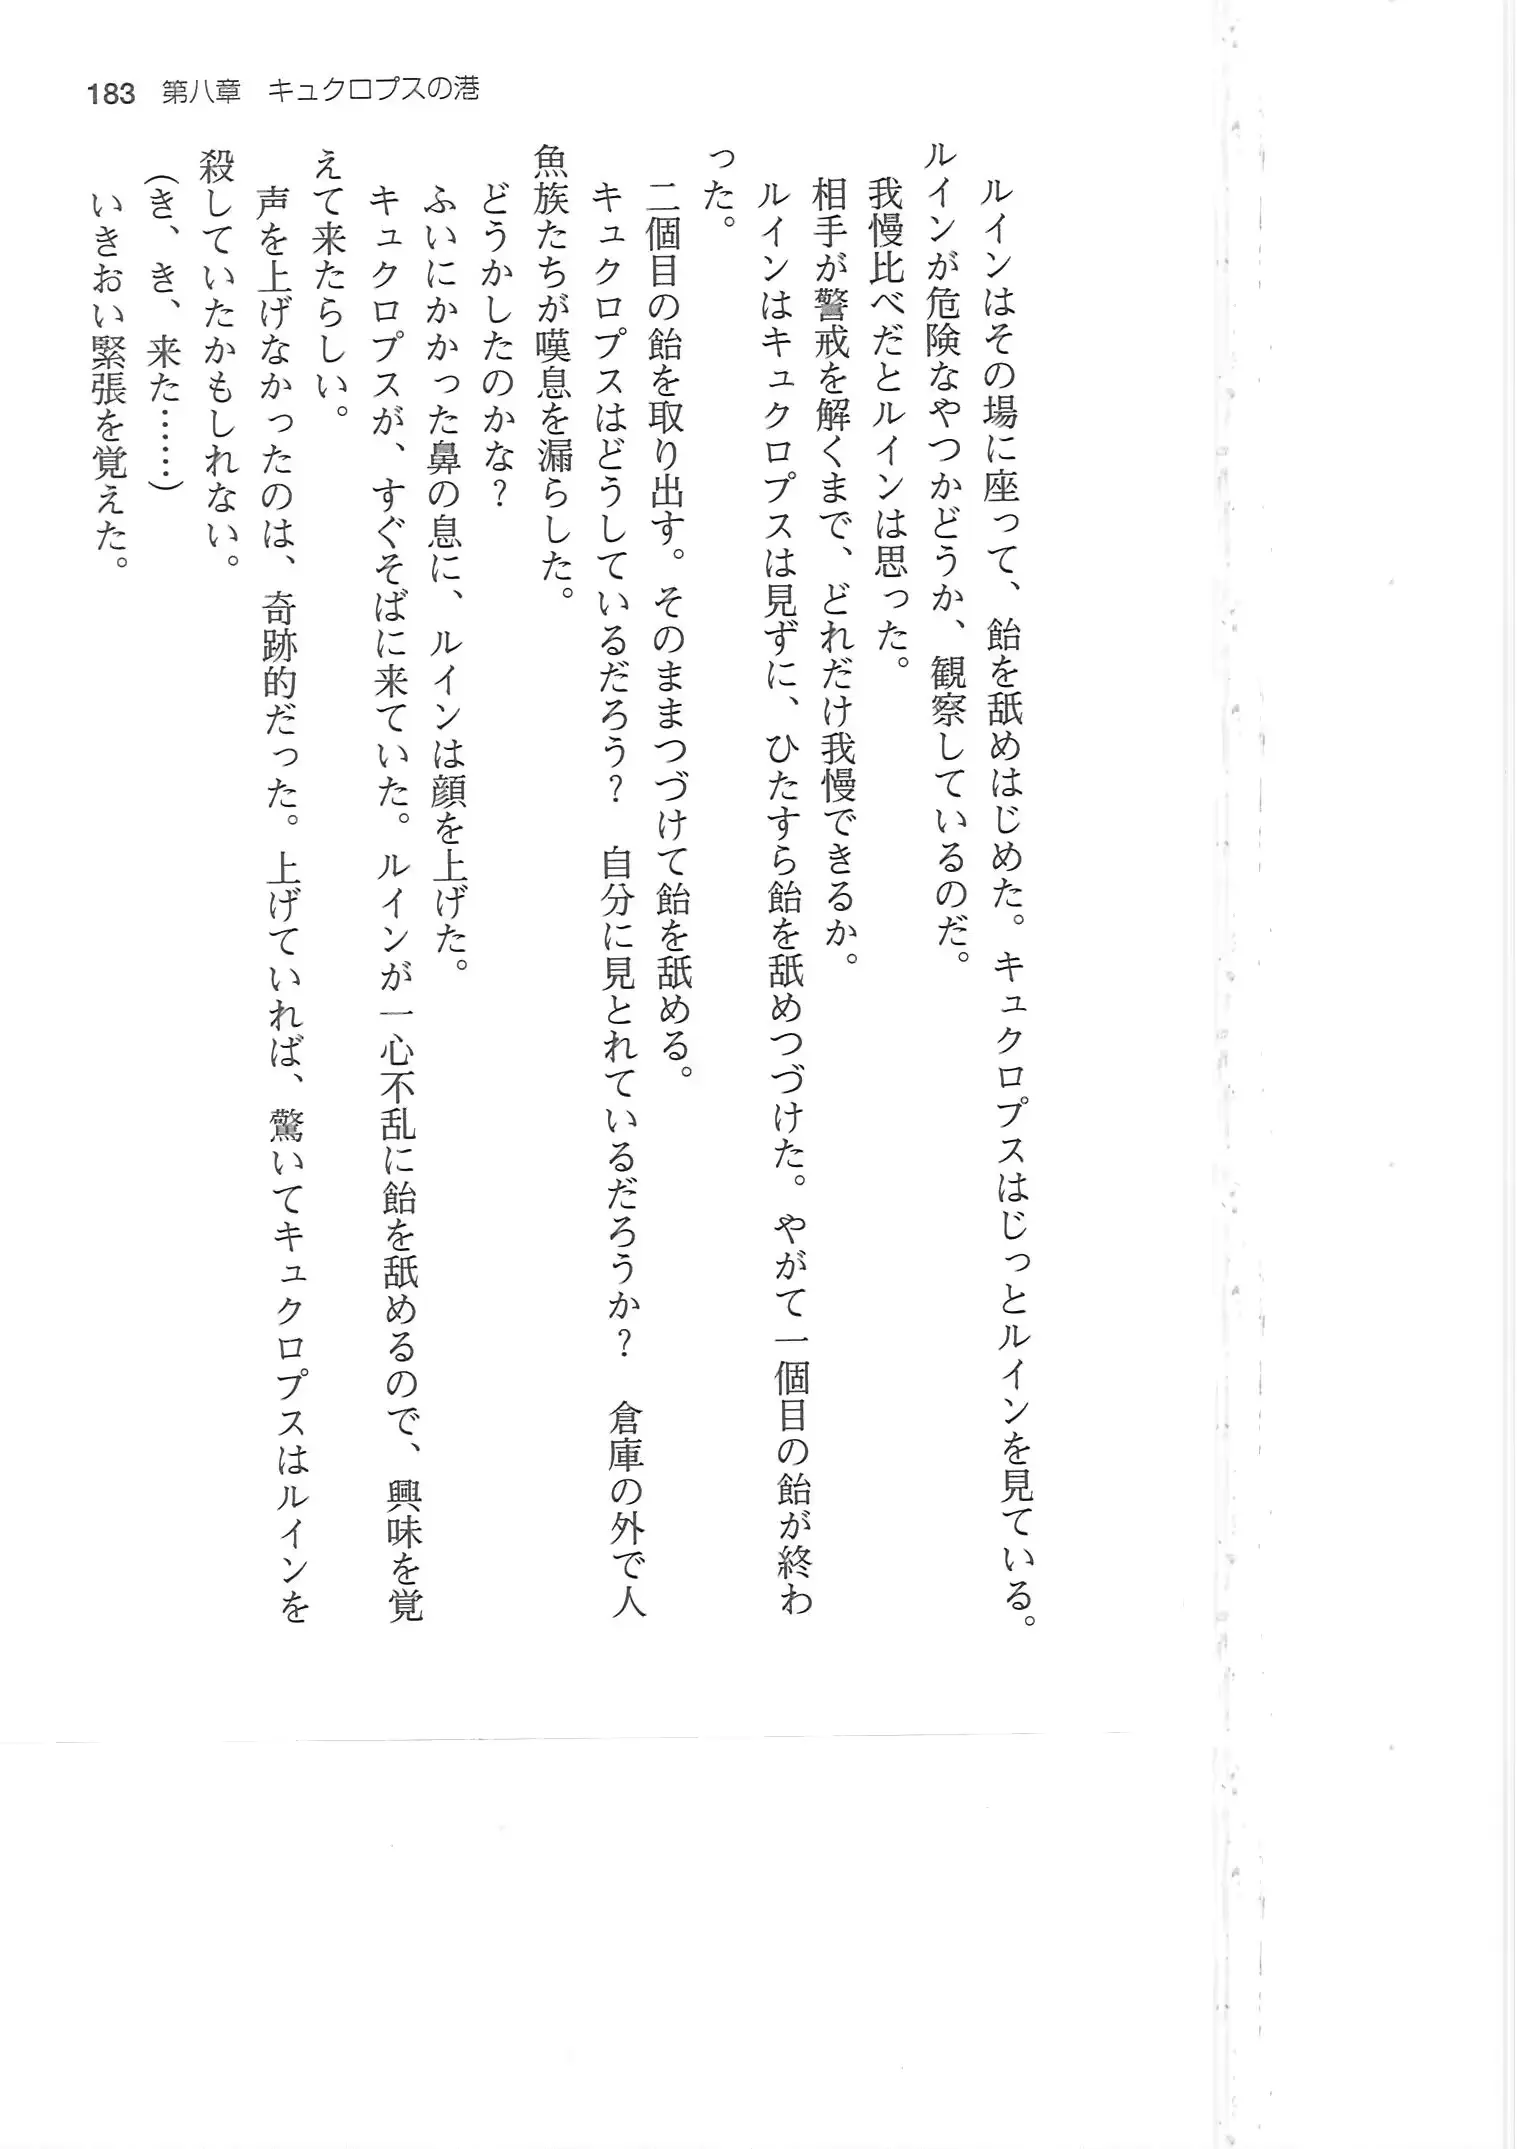 183 第八章 キュクロプスの港
　ルインはその場に座って、飴を舐めはじめた。キュクロプスはじっとルインを見ている。
ルインが危険なやつかどうか、観察しているのだ。
　我慢比べだとルインは思った。
　相手が警戒を解くまで、どれだけ我慢できるか。
　ルインはキュクロプスは見ずに、ひたすら飴を舐めつづけた。やがて一個目の飴が終わ
った。
　二個目の飴を取り出す。そのままつづけて飴を舐める。
　キュクロプスはどうしているだろう？　自分に見とれているだろうか？　倉庫の外で人
魚族たちが嘆息を漏らした。
　どうかしたのかな？
　ふいにかかった鼻の息に、ルインは顔を上げた。
　キュクロプスが、すぐそばに来ていた。ルインが一心不乱に飴を舐めるので、興味を覚
えて来たらしい。
　声を上げなかったのは、奇跡的だった。上げていれば、驚いてキュクロプスはルインを
殺していたかもしれない。
（き、き、来た……）
　いきおい緊張を覚えた。